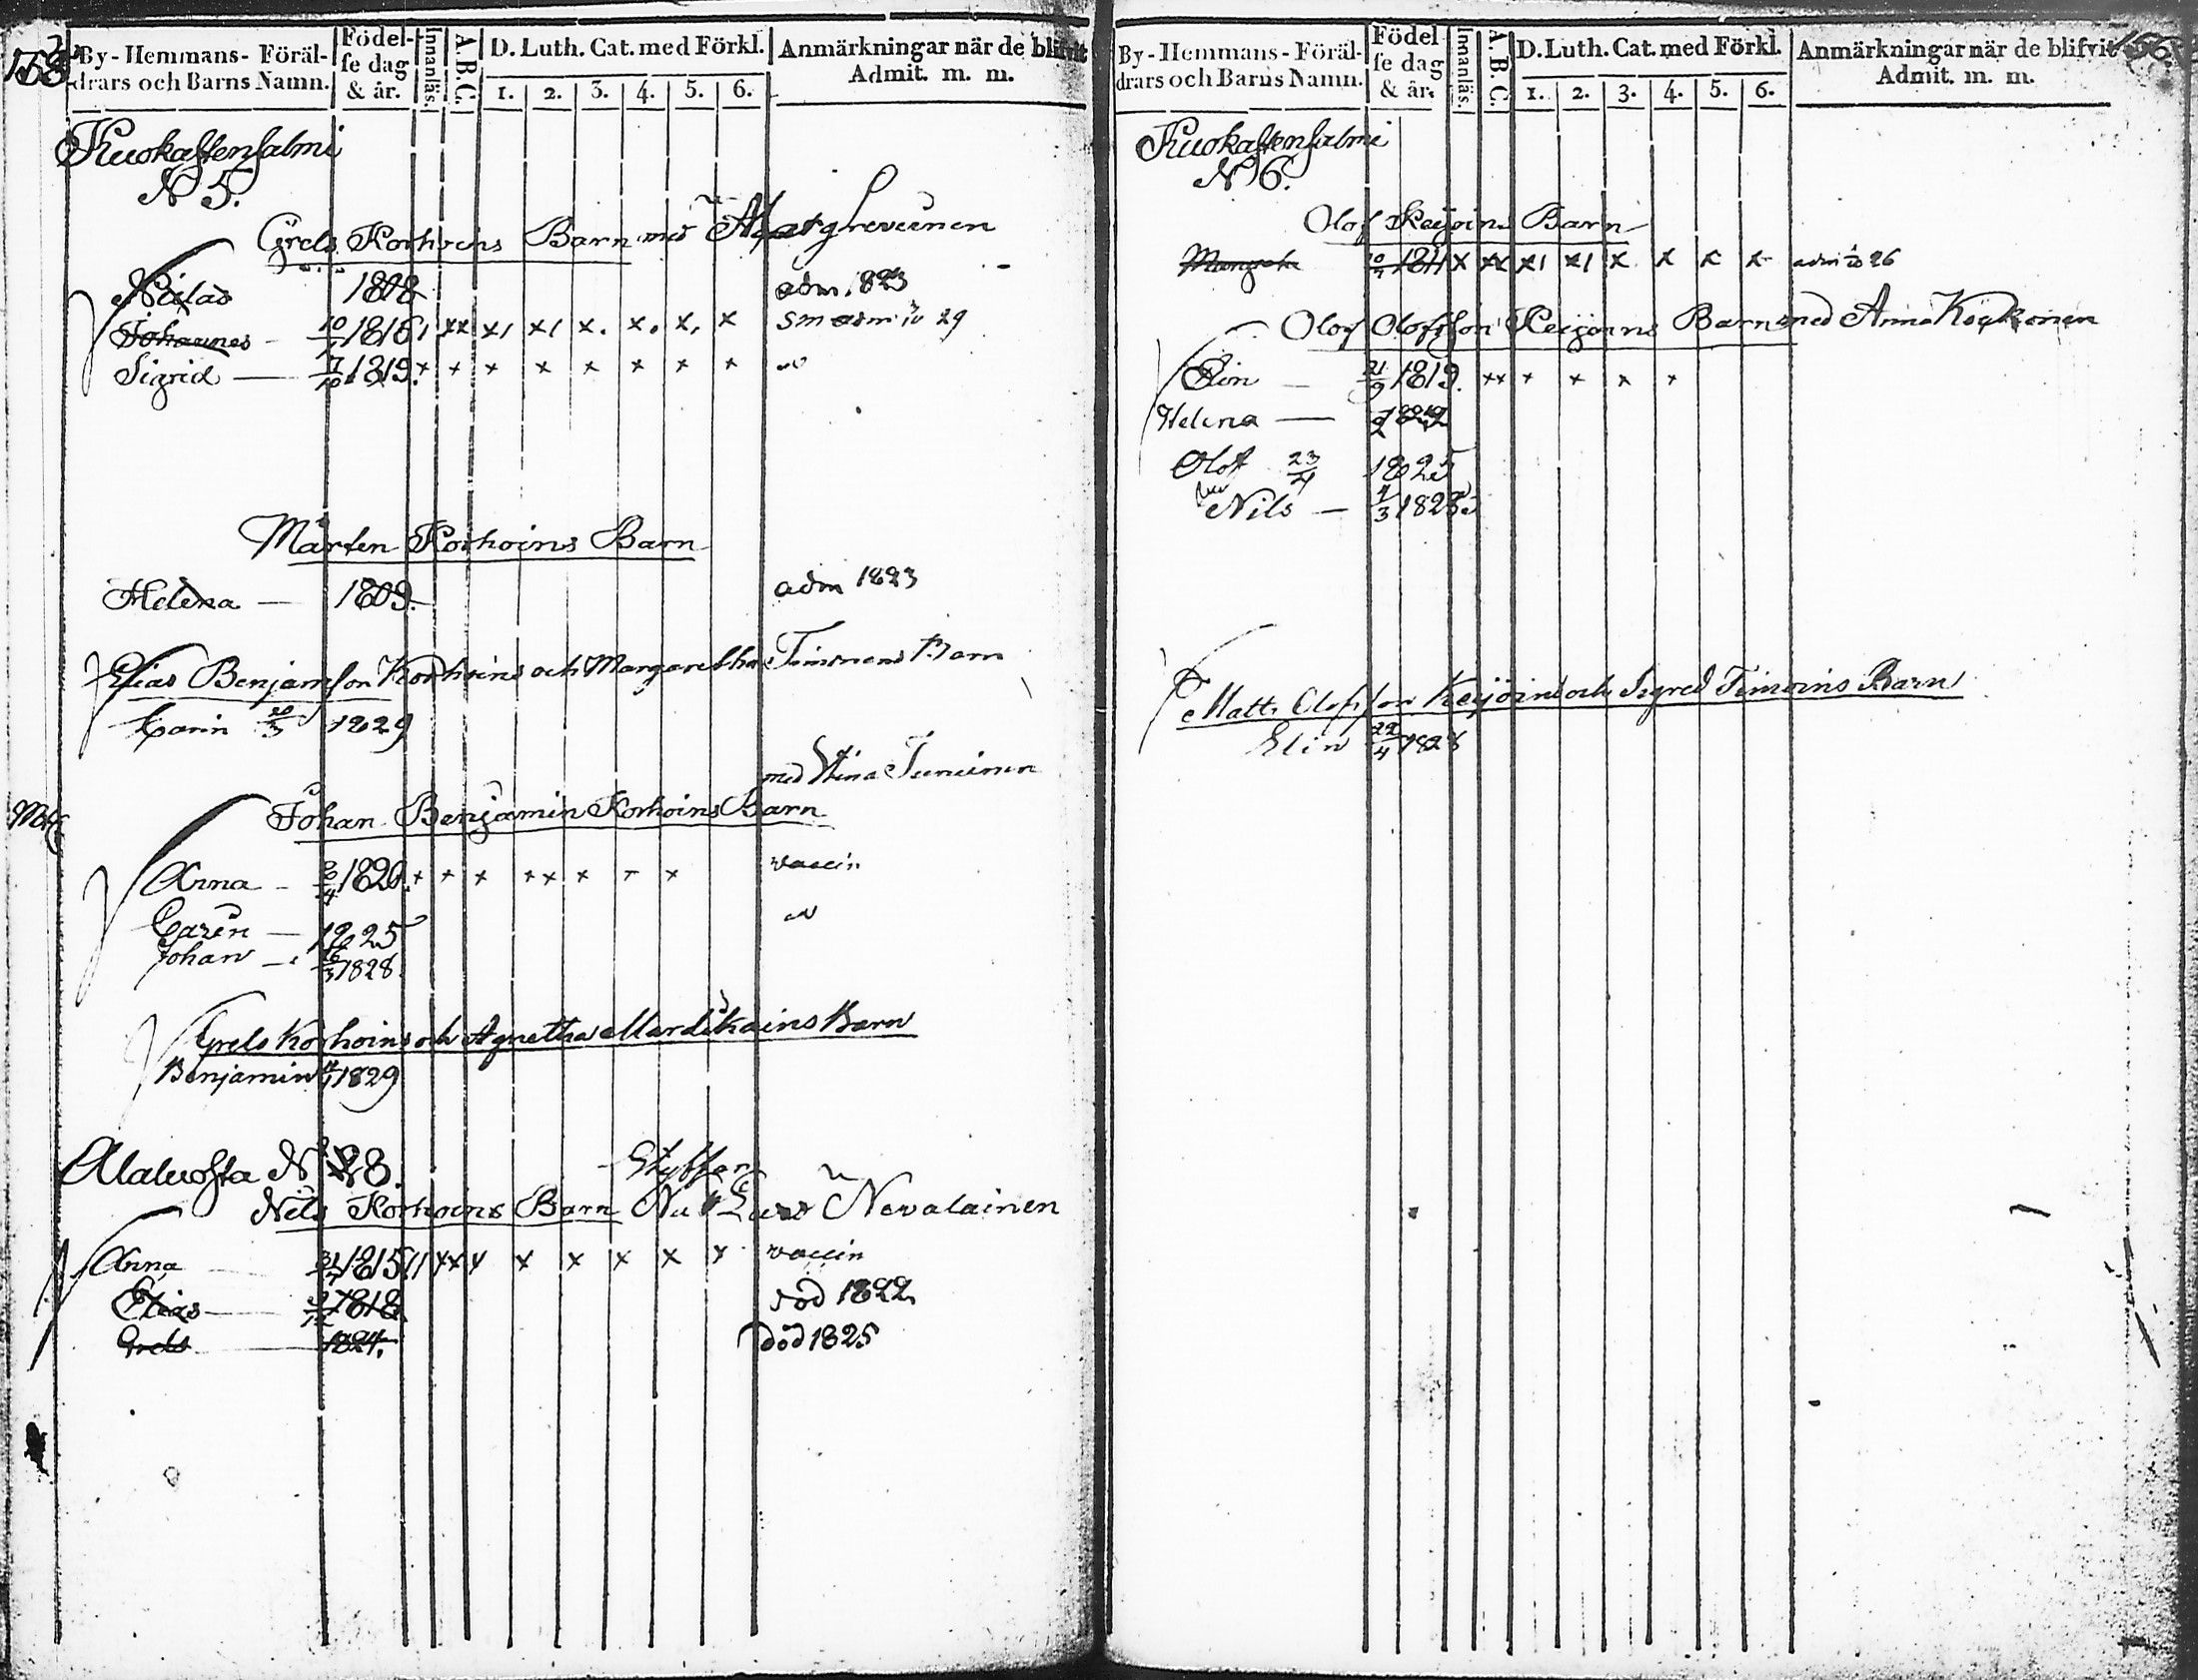 By-Hemmans-Föräl-drars och Barns Namn. Födel-se dag & år. Innanläs. A.B.C. D. Luth. Cat. med Förkl. 1. 2. 3. 4. 5. 6. Anmärkningar när de blifvit Admit. m. m.
Kuokastensalmi
N 5.
Grels Korhoins Barn med
Niclas 1808 adm. 1823
Johannes 1816 1 xx x1 x1 x. x. x. x 29
Sigrid — 7/10 1819. x x x x x x x x
Mårten Korhoins Barn
Helena — 1809. adm 1823
Elias Benjamsson Korhoins och Margaretha Timonens Barn
Carin 20/3 1829
med Stina Turuinen
Johan Benjamin Korhoins Barn
Anna — 1820. x x x xx x x x vaccin
Caren — 1825
Johan — 16/3 1828
Grels Korhoins och Agnetha Mardikains Barn
Benjamin 1829
Alaluosta N 28.
Styffar
Nils Korhoins Barn Nevalainen
Anna 1815 11 xx x x x x x x vaccin
Elias — 1818 död 1822
Grels 1824. död 1825
By-Hemmans-Föräl-drars och Barns Namn. Födel-se dag & år. Innanläs. A.B.C. D. Luth. Cat. med Förkl. 1. 2. 3. 4. 5. 6. Anmärkningar när de blifvit Admit. m. m.
Kuokastensalmi
N 6.
Olof Keijoins Barn
Margreta 1811 x xx x1 x1 x x x x adm 26
Olof Olofsson Keijoins Barn med Anna Köykönen
Elin — 21/9 1819. xx x x x x
Helena —
Olof 23/4 1825
Nils — 4/3 1828
Matts Olofsson Keijoins och Sigred Timoins Barn
Elin 22/4 1828